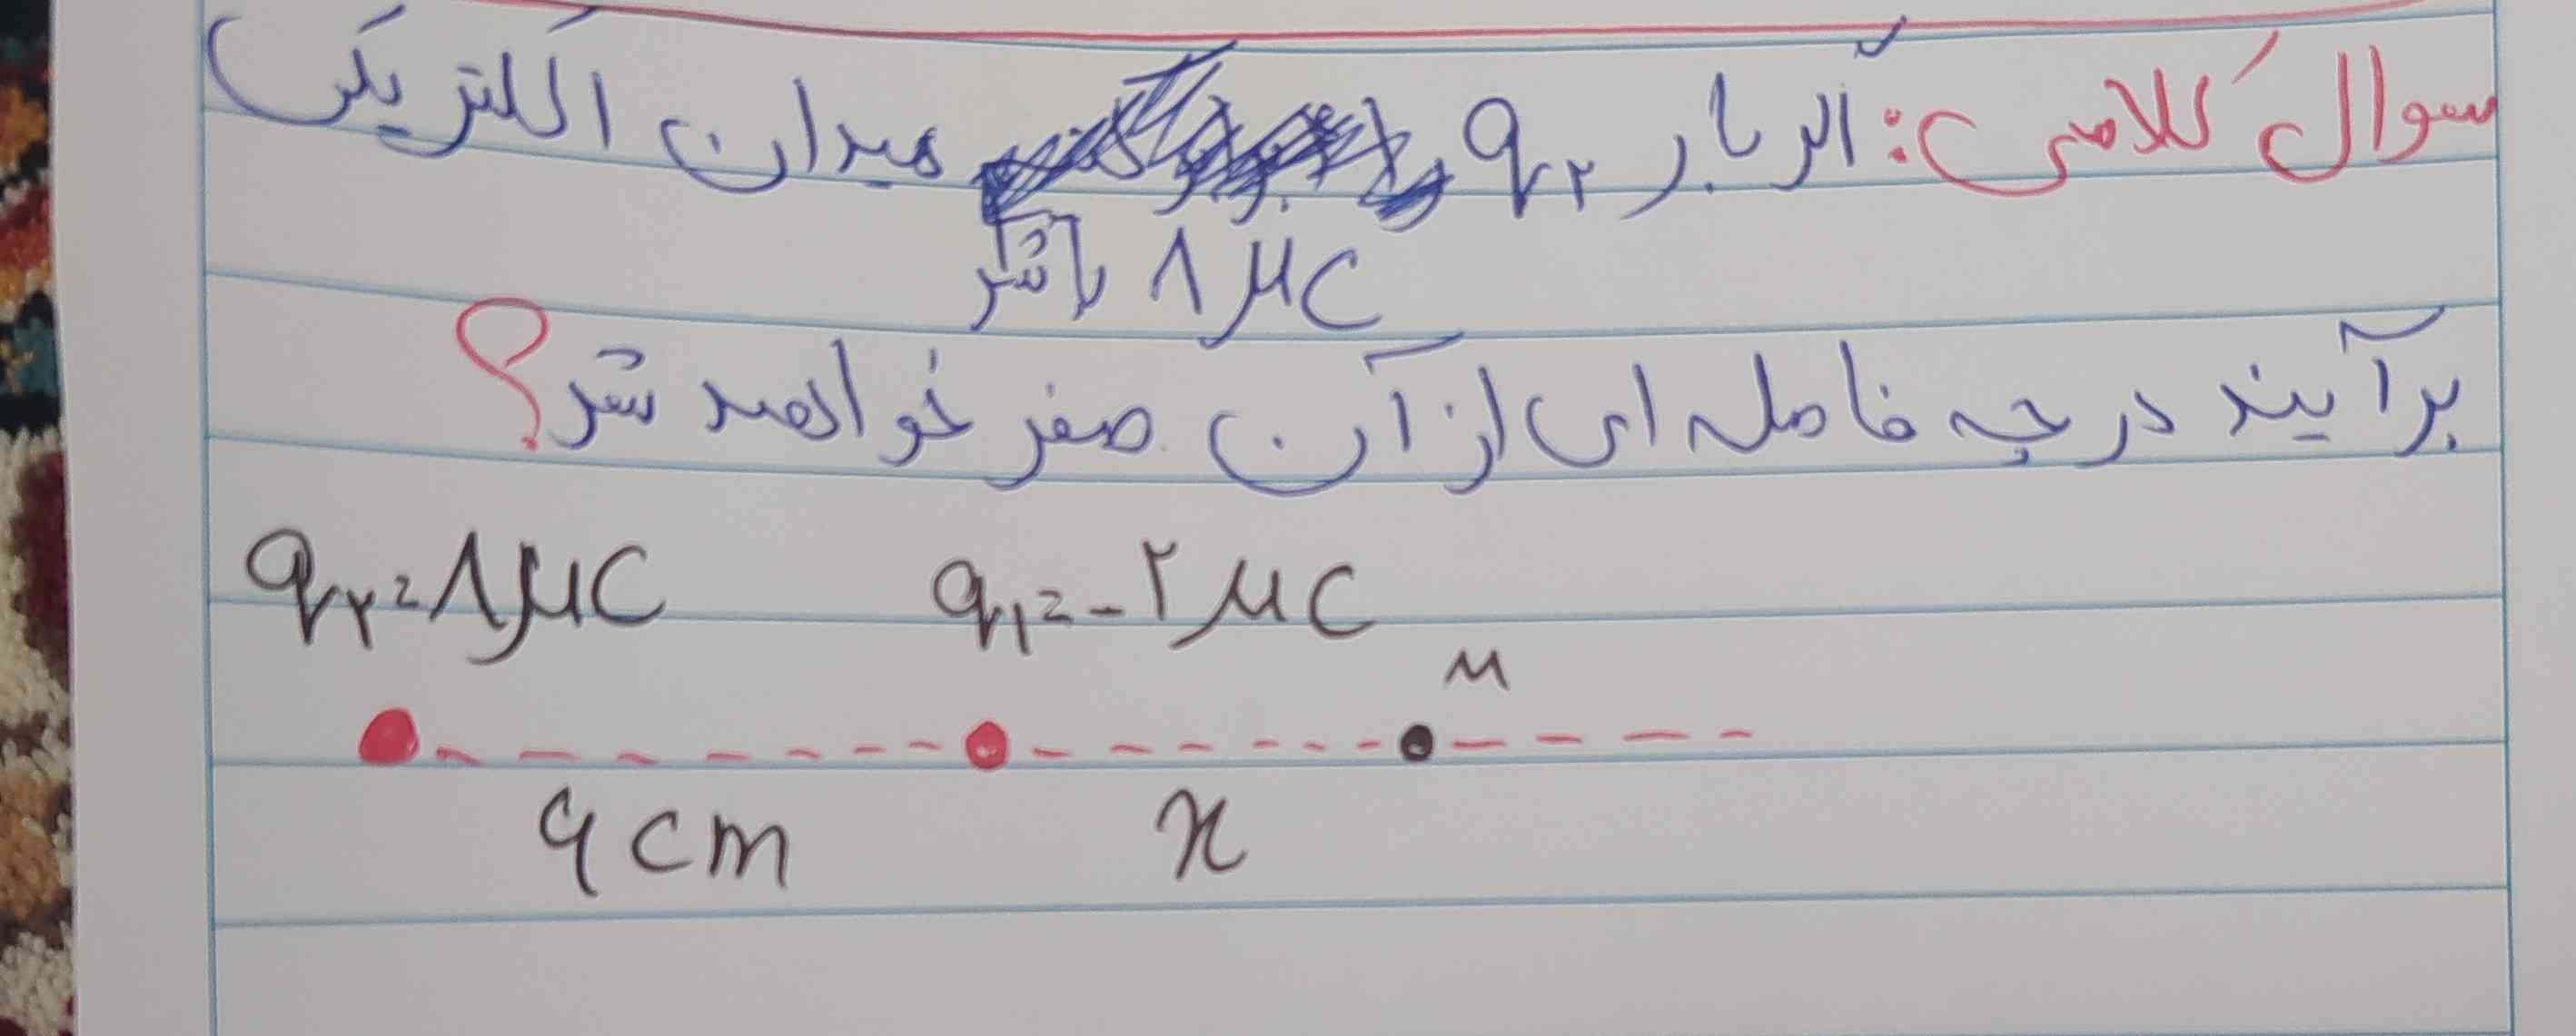 سوال کلاسی: اگر بار q₂ میدان الکتریکی
۸ μC باشد
برآیند در چه فاصله ای از آن صفر خواهد شد؟
q₂=۸μC q₁=-۲μC
M
۶cm x